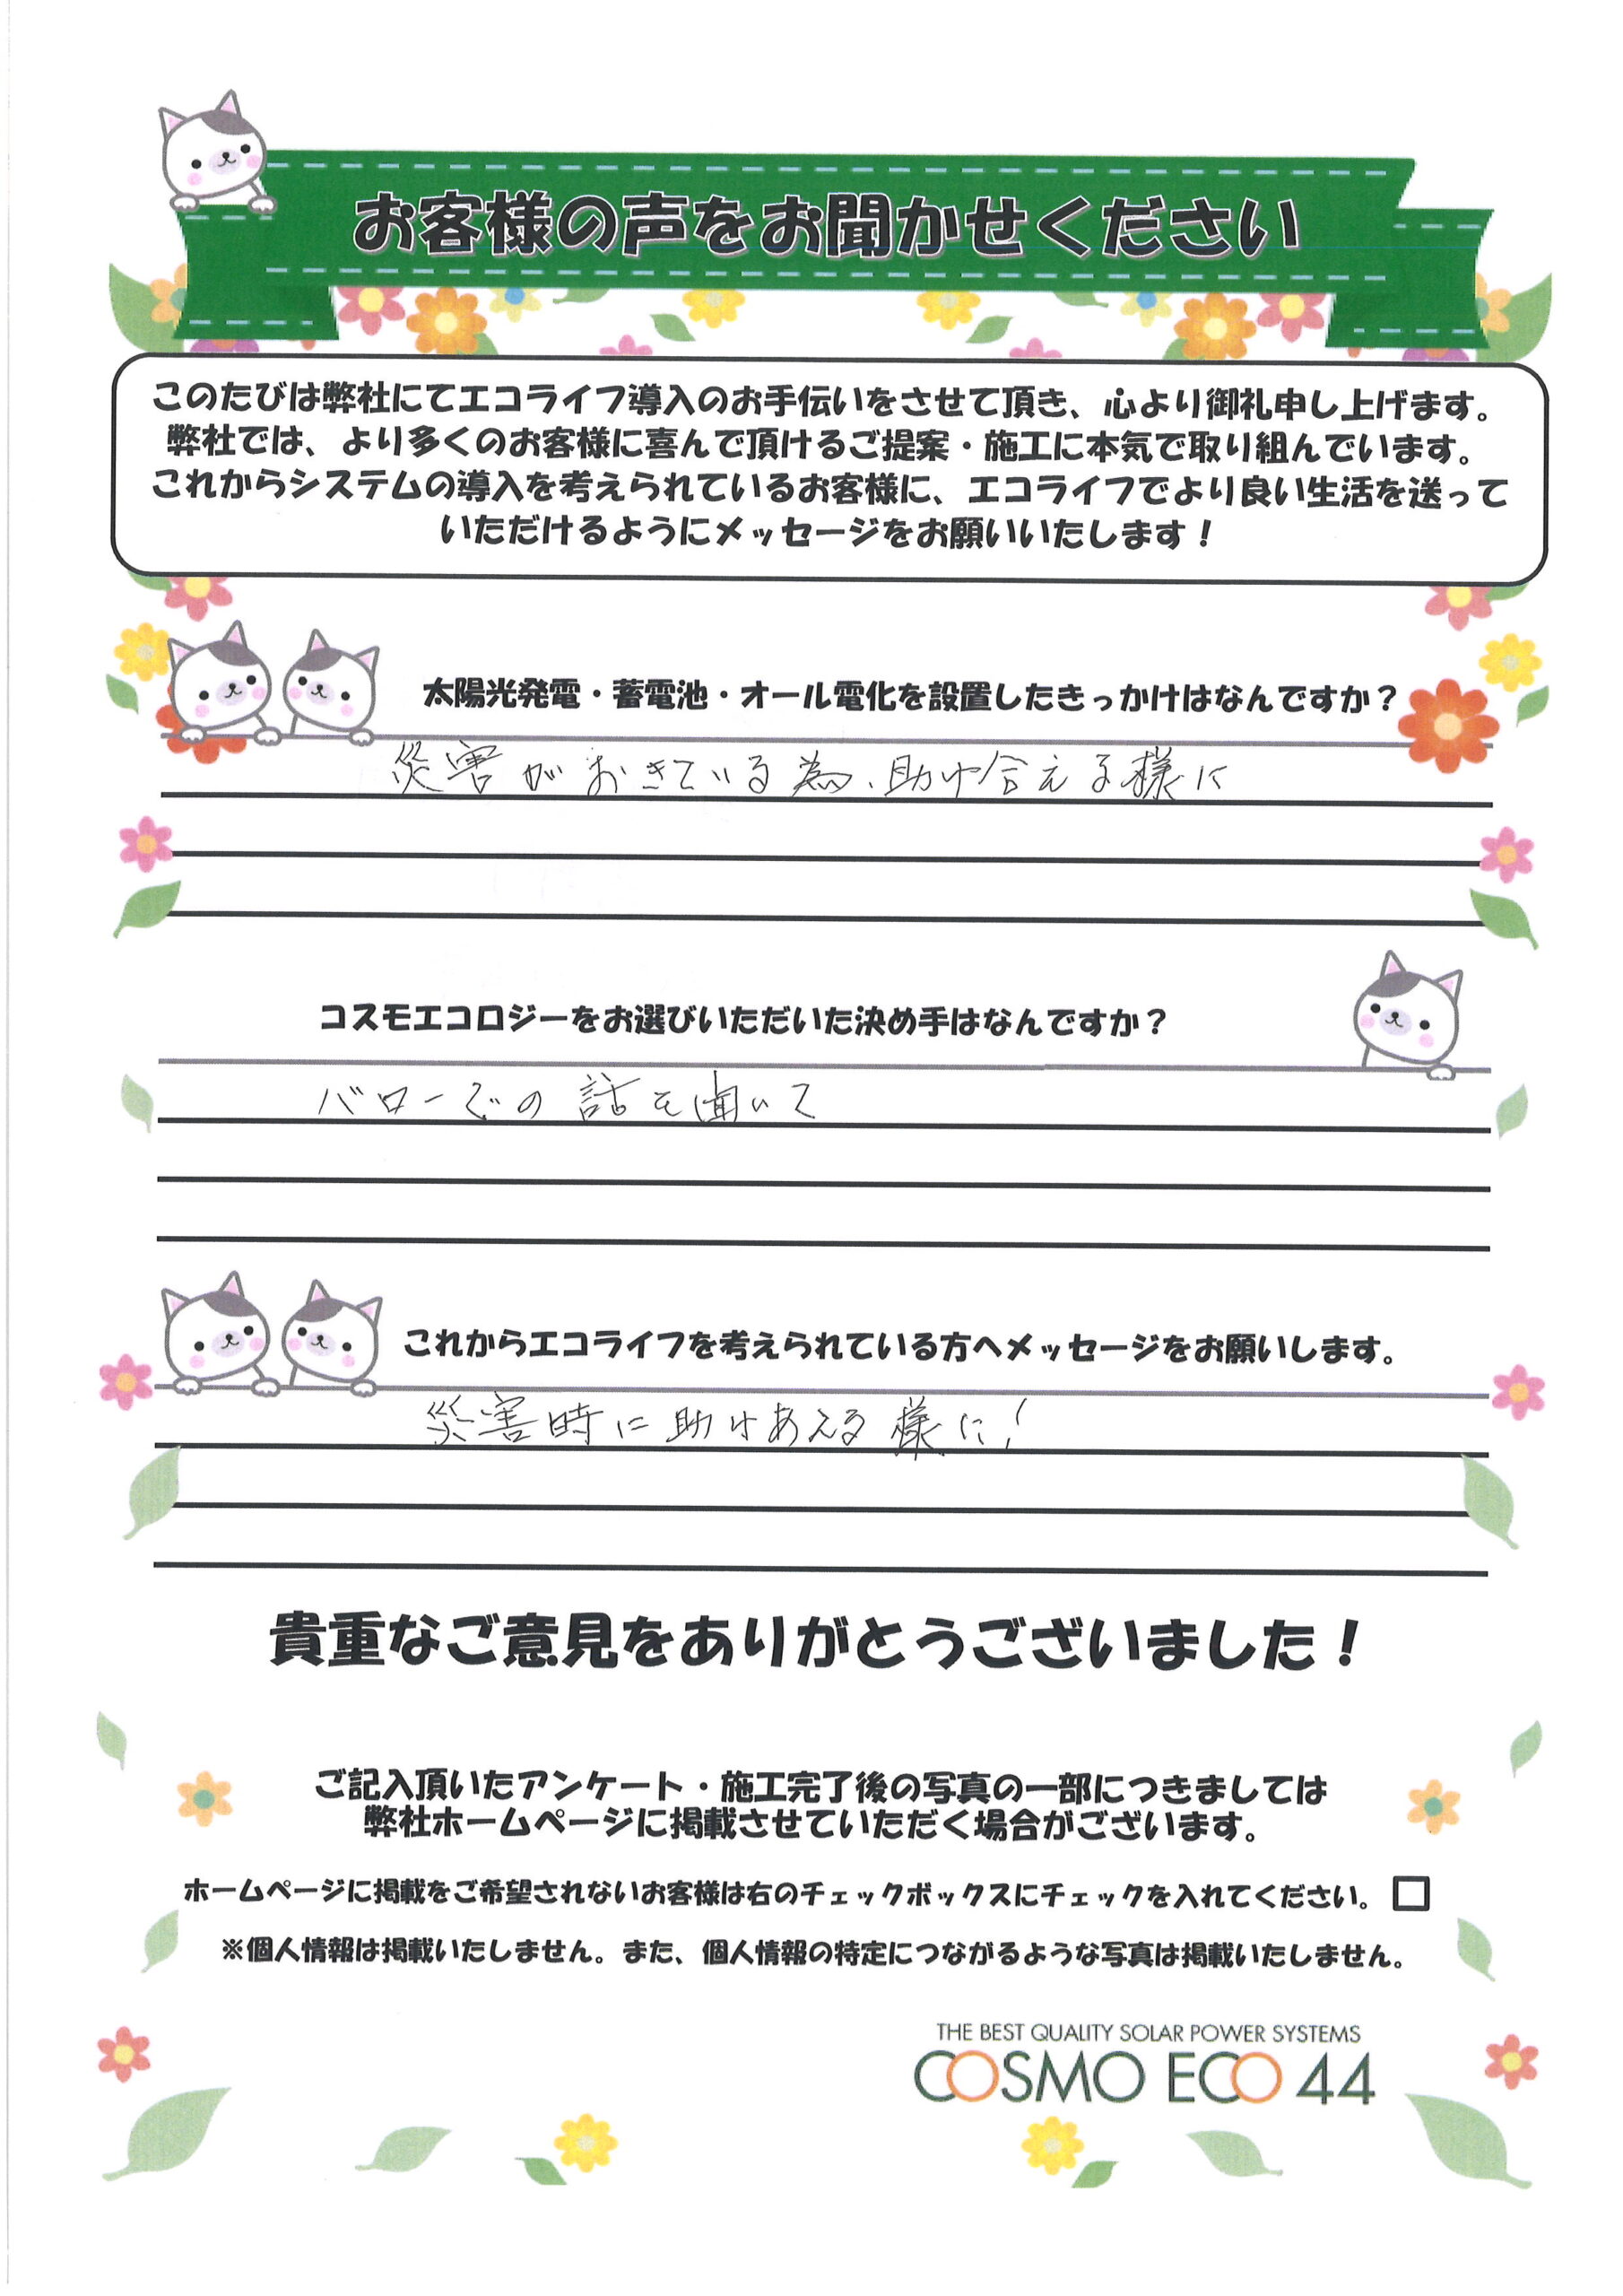 お客様の声をお聞かせください
このたびは弊社にてエコライフ導入のお手伝いをさせて頂き、心より御礼申し上げます。
弊社では、より多くのお客様に喜んで頂けるご提案・施工に本気で取り組んでいます。
これからシステムの導入を考えられているお客様に、エコライフでより良い生活を送って
いただけるようにメッセージをお願いいたします！
太陽光発電・蓄電池・オール電化を設置したきっかけはなんですか？
災害がおきている為、助け合える様に
コスモエコロジーをお選びいただいた決め手はなんですか？
バローでの話を聞いて
これからエコライフを考えられている方へメッセージをお願いします。
災害時に助けあえる様に！
貴重なご意見をありがとうございました！
ご記入頂いたアンケート・施工完了後の写真の一部につきましては
弊社ホームページに掲載させていただく場合がございます。
ホームページに掲載をご希望されないお客様は右のチェックボックスにチェックを入れてください。 □
※個人情報は掲載いたしません。また、個人情報の特定につながるような写真は掲載いたしません。
THE BEST QUALITY SOLAR POWER SYSTEMS
COSMO ECO 44